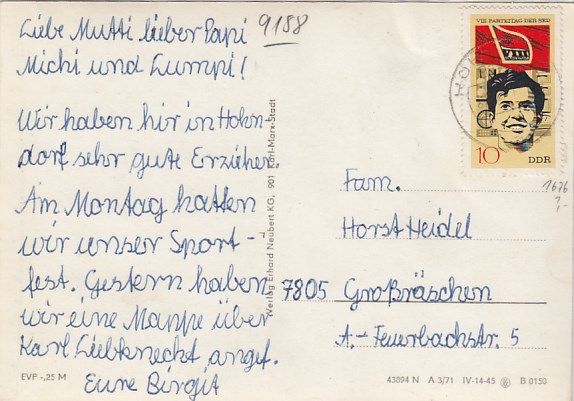 9188
Liebe Mutti lieber Papi
Michi und Lumpi!
Wir haben hir in Hohn-
dorf sehr gute Erzieher.
Am Montag hatten
wir unser Sport-
fest. Gestern haben
wir eine Mappe über
Karl Liebknecht angef.
Eure Birgit
EVP -,25 M
Verlag Erhard Neubert KG, 901 Karl-Marx-Stadt
VIII. PARTEITAG DER SED
VIII
10
DDR
1676
1,-
Fam.
Horst Heidel
7805 Großräschen
A.-Feuerbachstr. 5
43894 N A 3/71 IV-14-45 B 0150